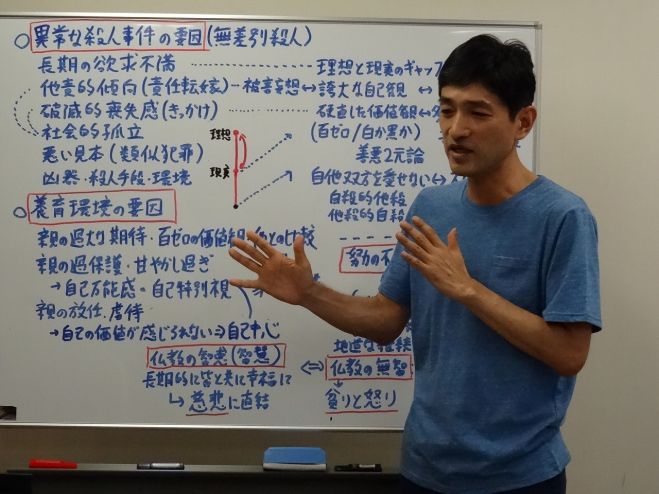 ○異常な殺人事件の要因(無差別殺人)
長期の欲求不満 …… 理想と現実のギャップ
他責的傾向(責任転嫁)‥被害妄想↔誇大な自己観 ↔
破滅的喪失感(きっかけ) …… 硬直した価値観↔
社会的孤立
(百ゼロ/白か黒か)
悪い見本(類似犯罪)
善悪2元論
凶器・殺人手段・環境
自他双方を愛せない↔
自殺的他殺
他殺的自殺
理想
現実
○養育環境の要因
親の過大な期待・百ゼロの価値観・他との比較
親の過保護・甘やかし過ぎ
→自己万能感・自己特別視
親の放任・虐待
→自己の価値が感じられない⇒自己中心
努力の不
地道な
仏教の智恵(智慧)
⇔ 仏教の無智
長期的に皆と共に幸福に
↳慈悲に直結
貪りと怒り